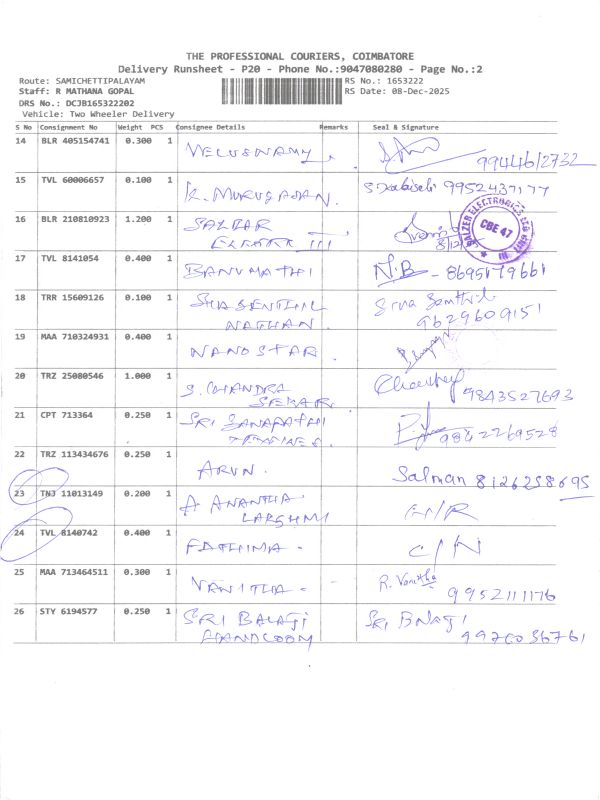 THE PROFESSIONAL COURIERS, COIMBATORE
Delivery Runsheet - P20 - Phone No.:9047080280 - Page No.:2
Route: SAMICHETTIPALAYAM RS No.: 1653222
Staff: R MATHANA GOPAL RS Date: 08-Dec-2025
DRS No.: DCJB165322202
Vehicle: Two Wheeler Delivery
S No Consignment No Weight PCS Consignee Details Remarks Seal & Signature
14 BLR 405154741 0.300 1 VELUSWAMY 9944612732
15 TVL 60006657 0.100 1 K. MURUGASAN. 9952437177
16 BLR 210810923 1.200 1 SALZER
ELEKTRK III
SALZER ELECTRONICS LTD UNIT III CBE 47
17 TVL 8141054 0.400 1 BANUMATHI N.B - 8695179661
18 TRR 15609126 0.100 1 SIVA SENTHIL
NATHAN. 9629609151
19 MAA 710324931 0.400 1 NANOSTAR.
20 TRZ 25080546 1.000 1 S. CHANDRA
SEKAR 9843527693
21 CPT 713364 0.250 1 SRI GANAPATHI
9842269528
22 TRZ 113434676 0.250 1 ARUN. Salman 8126258695
23 TNJ 11013149 0.200 1 A ANANTHA
LAKSHMI
24 TVL 8140742 0.400 1 FATHIMA - C/N
25 MAA 713464511 0.300 1 VANITHA - R. Vanitha 9952111176
26 STY 6194577 0.250 1 SRI BALAJI
HANDLOOM SRI BALAJI
9976036761